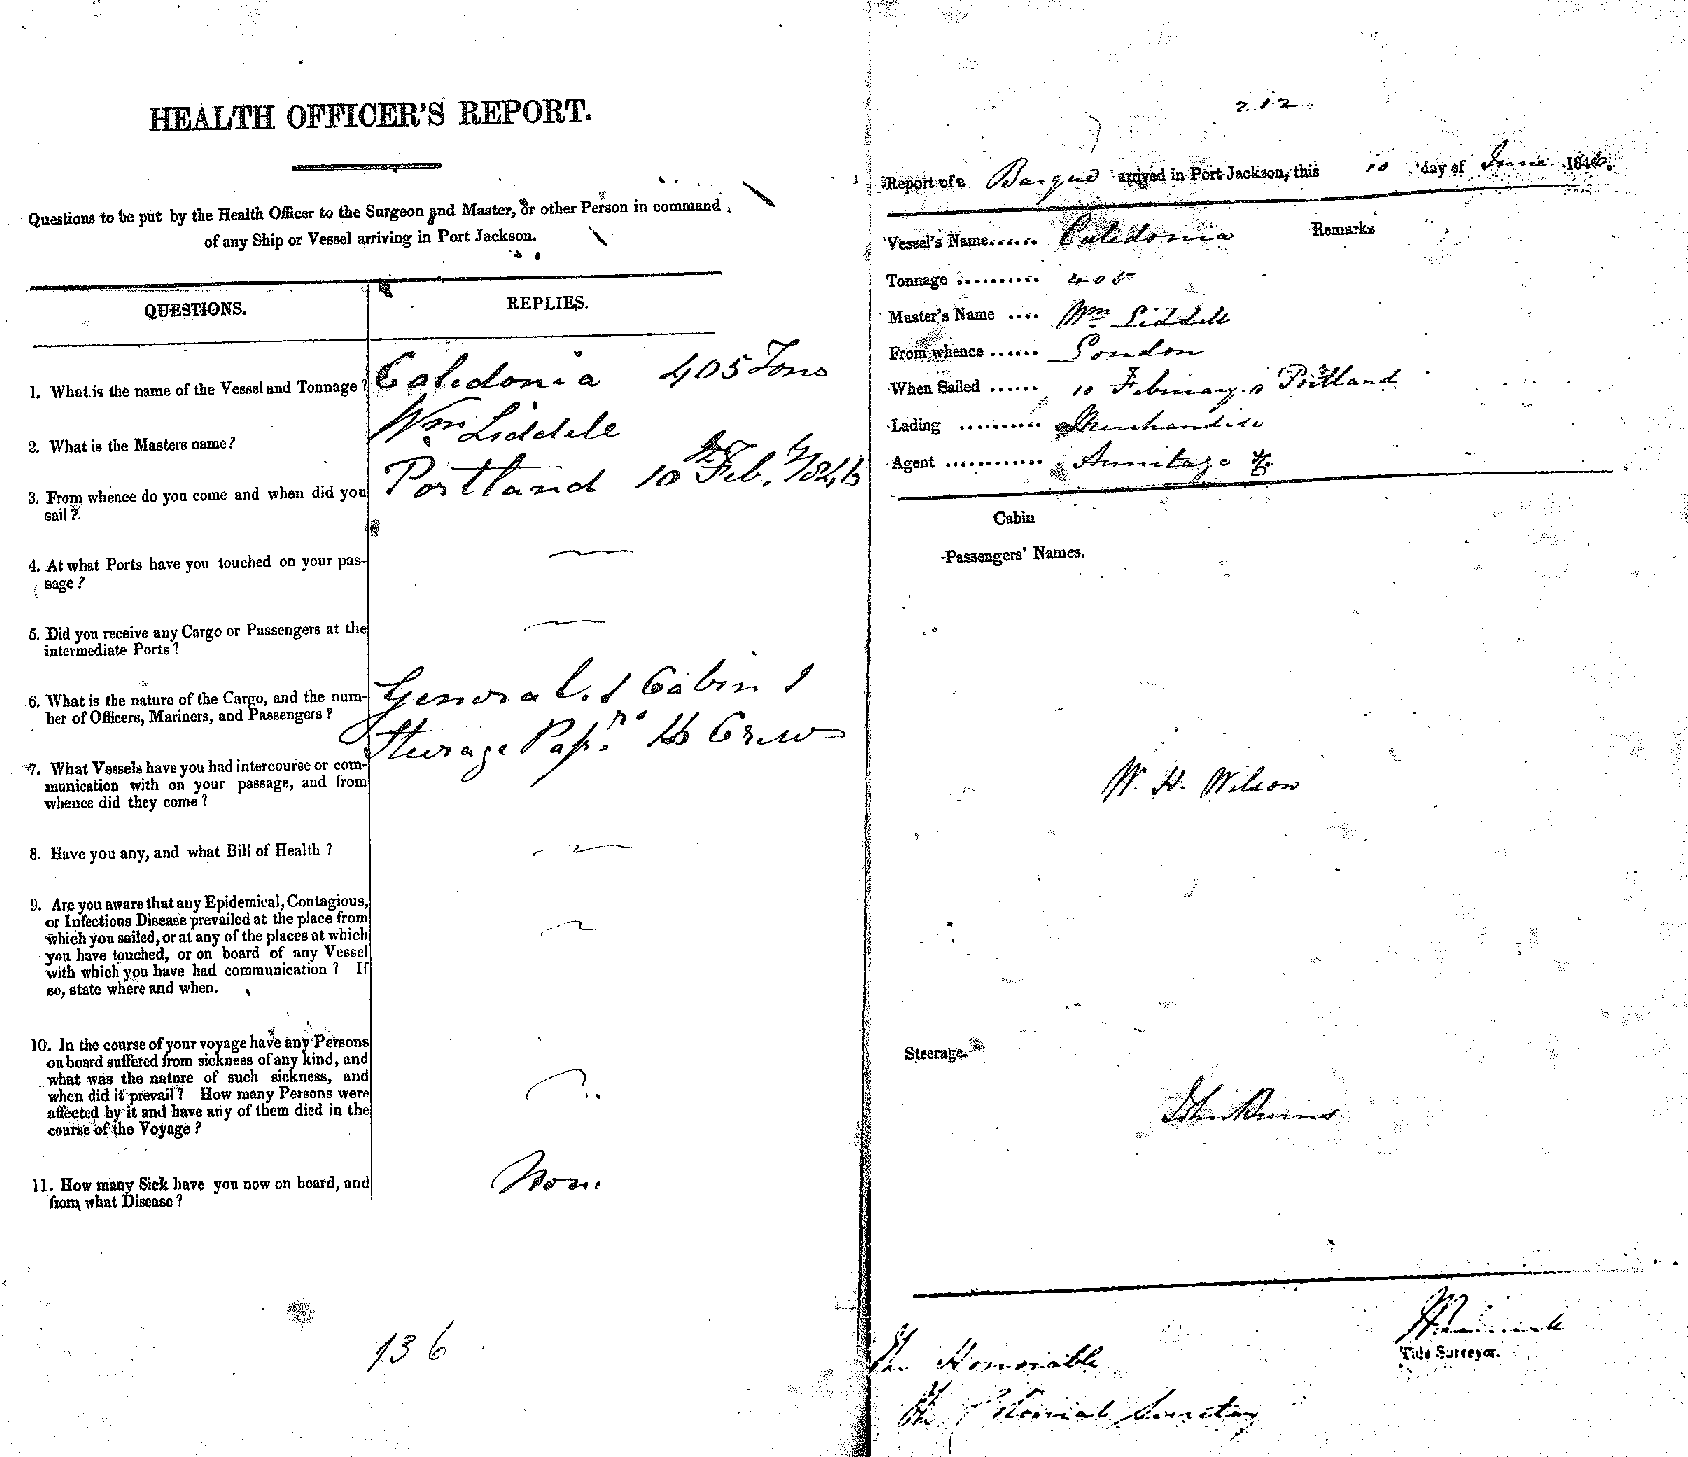 HEALTH OFFICER'S REPORT.
Questions to be put by the Health Officer to the Surgeon and Master, or other Person in command
of any Ship or Vessel arriving in Port Jackson.
QUESTIONS.
REPLIES.
1. What is the name of the Vessel and Tonnage?
Caledonia 405 Tons
2. What is the Masters name?
Wm Liddell
3. From whence do you come and when did you
sail?
Portland 10th Feb. 1846
4. At what Ports have you touched on your pas-
sage?
5. Did you receive any Cargo or Passengers at the
intermediate Ports?
6. What is the nature of the Cargo, and the num-
ber of Officers, Mariners, and Passengers?
General. 1 Cabin 1
Steerage Passrs. 16 Crew
7. What Vessels have you had intercourse or com-
munication with on your passage, and from
whence did they come?
8. Have you any, and what Bill of Health?
9. Are you aware that any Epidemical, Contagious,
or Infectious Disease prevailed at the place from
which you sailed, or at any of the places at which
you have touched, or on board of any Vessel
with which you have had communication? If
so, state where and when.
10. In the course of your voyage have any Persons
on board suffered from sickness of any kind, and
what was the nature of such sickness, and
when did it prevail? How many Persons were
affected by it and have any of them died in the
course of the Voyage?
11. How many Sick have you now on board, and
from what Disease?
None
136
212
Report of a Barque arrived in Port Jackson, this 10 day of June 1846.
Vessel's Name...... Caledonia
Remarks
Tonnage .......... 405
Master's Name .... Wm Liddell
From whence ...... London
When Sailed ...... 10 February Portland
Lading .......... Merchandise
Agent ............ Armitage & Co
Cabin
Passengers' Names.
W. H. Wilson
Steerage.
John Burns
Tide Surveyor.
The Honorable
The Colonial Secretary